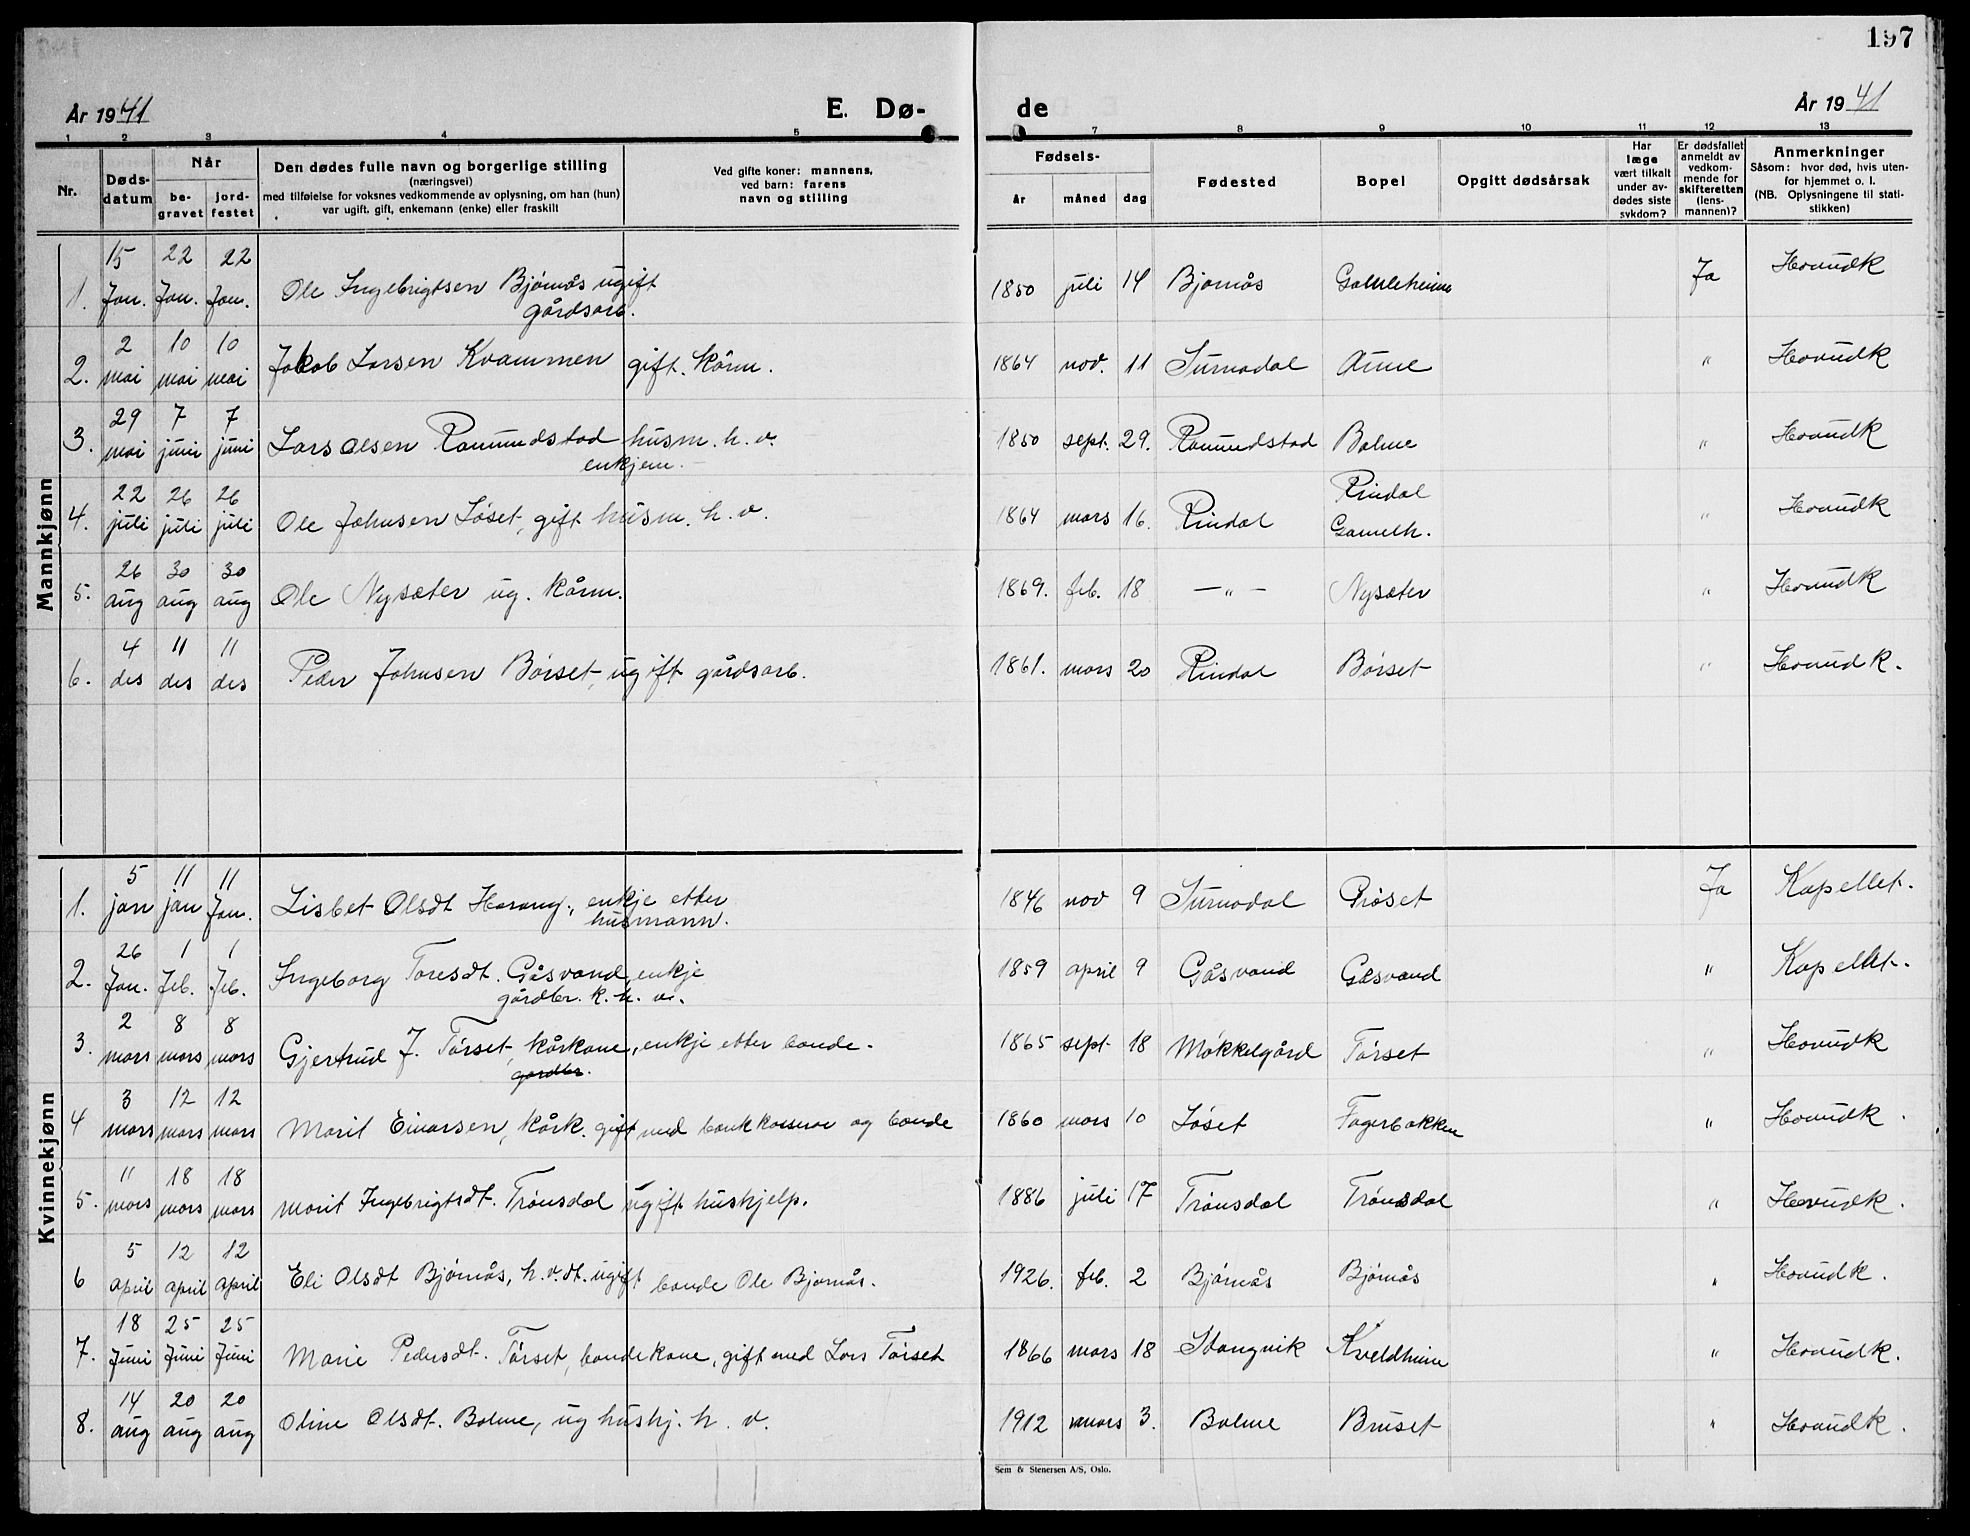 197
År 1941 E. Dø- de År 1941
1 2 3 4 5 7 8 9 10 11 12 13
Nr.
Døds-
datum
Når
be-
gravet
jord-
festet
Den dødes fulle navn og borgerlige stilling
(næringsvei)
med tilføielse for voksnes vedkommende av oplysning, om han (hun)
var ugift, gift, enkemann (enke) eller fraskilt
Ved gifte koner: mannens,
ved barn: farens
navn og stilling
Fødsels-
år måned dag
Fødested
Bopel
Opgitt dødsårsak
Har
læge
vært tilkalt
under av-
dødes siste
sykdom?
Er dødsfallet
anmeldt av
vedkom-
mende for
skifteretten
(lens-
mannen)?
Anmerkninger
Såsom: hvor død, hvis uten-
for hjemmet o. l.
(NB. Oplysningene til stati-
stikken)
Mannkjønn
15 22 22
1. Jan. Jan. Jan. Ole Ingebrigtsen Bjørnås ugift 1850 juli 14 Bjørnås Gamleheim Ja Hovudk
gårdsarb.
2 10 10
2. mai mai mai Jakob Larsen Kvammen gift. kårm. 1864 nov. 11 Surnadal Aune " Hovudk
29 7 7
3. mai juni juni Lars Olsen Romundstad husm. h. v. 1850 sept. 29. Romundstad Bolme " Hovudk
enkjem.
22 26 26 Rindal
4. juli juli juli Ole Johnsen Løset, gift husm. h. v. 1864 mars 16. Rindal Gamelh. " Hovudk
26 30 30
5. aug aug aug Ole Nysæter ug. kårm. 1869. feb. 18 —"— Nysæter " Hovudk
4 11 11
6. des des des Peder Johnsen Børset, ugift gårdsarb. 1861. mars 20 Rindal Børset " Hovudk.
Kvinnekjønn
5 11 11
1. jan jan Jan. Lisbet Olsdt Harang, enkje etter 1846 nov 9 Surnadal Prøset Ja Kapellet.
husmann.
26 1 1
2. Jan. Feb. Feb. Ingeborg Toresdt. Gåsvand, enkje 1859 april 9 Gåsvand Gåsvand " Kapellet.
gårdbr. k. h. v.
2 8 8
3. mars mars mars Gjertrud J. Tørset, kårkone, enkje etter bonde. 1865 sept 18 Møkkelgård Tørset " Hovudk
gårdbr.
3 12 12
4 mars mars mars Marit Einarsen, kårk. gift med bankkasserar og bonde 1860 mars 10 Løset Fagerbakken " Hovudk.
11 18 18
5. mars mars mars Marit Ingebrigtsdt. Trønsdal ugift hushjelp. 1886 juli 17 Trønsdal Trønsdal " Hovudk.
5 12 12
6 april april april Eli Olsdt Bjørnås, h.v. dt. ugift bonde Ole Bjørnås. 1926. feb. 2 Bjørnås Bjørnås " Hovudk.
18 25 25
7. Juni Juni Juni Marie Pedersdt. Tørset, bondekone, gift med Lars Tørset 1866 mars 18 Stangvik Kveldheim " Hovudk.
14 20 20
8. aug aug aug Oline Olsdt. Bolme, ug hushj. h. v. 1912 mars 3. Bolme Bruset " Hovudk.
Sem & Stenersen A/S, Oslo.